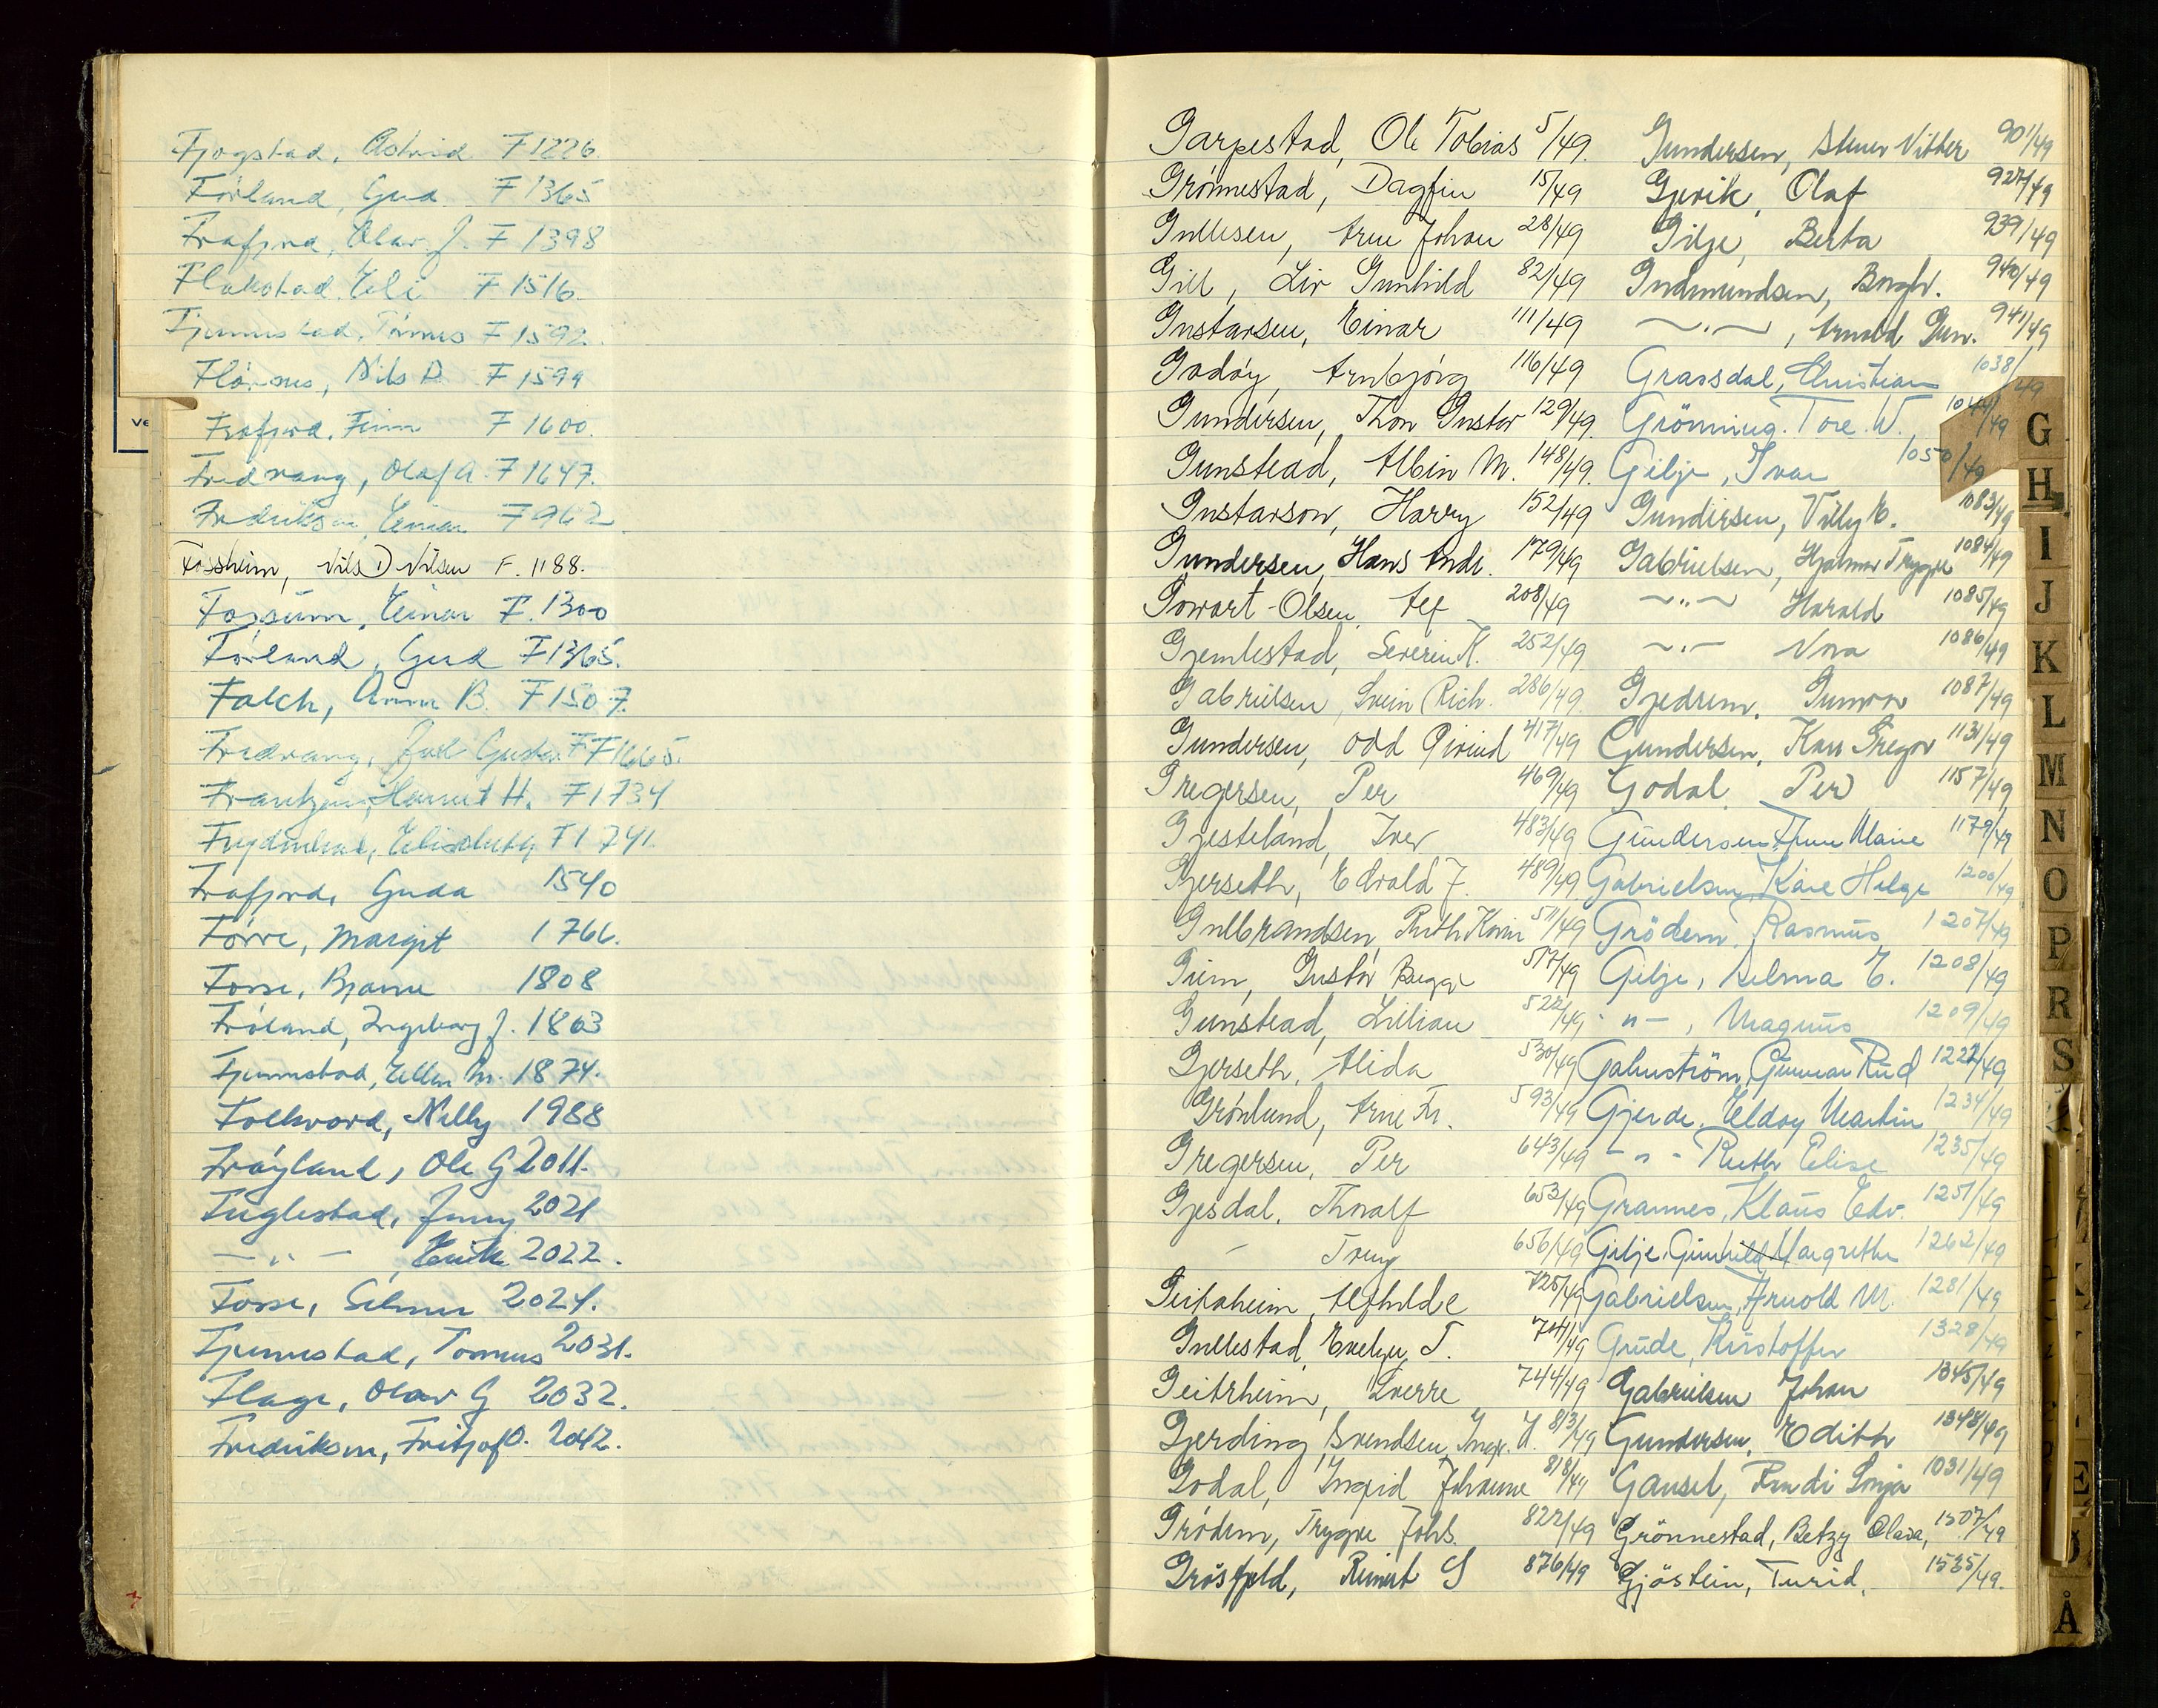 Fjogstad, Astrid F 1226.
Førland, Gerd F 1365
Frafjord, Olav J. F 1398
Flakstad, Eli F 1516
Fjermestad, Tønnes F 1592.
Nils D. F 1599
Ve
Frafjord, Finn F 1600.
Fredvang, Olaf A. F 1647.
Fredriksen, Einar F 962
Fossheim, Nils D Nilsen F. 1188.
Fossum, Einar F. 1300
Førland, Gerd F 1365.
Falch, Anna B. F 1507.
Fredvang, Gustav F F 1665.
Frantzen, H. F 1734
Elisabeth F 1741.
Frafjord, Guda 1540
Førre, Margit 1766.
Fosse, Bjarne 1808
Frøland, Ingeborg J. 1863
Fjermestad, Ellen M. 1874.
Folkvord, Nelly 1988
Frøyland, Ole G 2011.
Fuglestad, Jenny 2021
— " — , Erik 2022.
Fosse, Selmer 2024.
Fjermestad, Tønnes 2031.
Hage, Olav G 2032.
Fredriksen, Fritjof O. 2042.
Garpestad, Ole Tobias 5/49.
Grønnestad, Dagfin 15/49
Gullesen, Arne Johan 28/49
Gill, Liv Gunhild 82/49
Gustavsen, Einar 111/49
Godøy, Arnbjørg 116/49
Gundersen, Thor Gustav 129/49.
Gunstead, Albin M. 148/49.
Gustavson, Harry 152/49
Gundersen, Hans Andr. 179/49
Gowart-Olsen, Alf 208/49
Gjemlestad, Severin K. 252/49
Gabrielsen, Svein Rich. 286/49.
Gundersen, Odd Øivind 417/49
Gregersen, Per 469/49
Gjesteland, Iver 483/49
Gjerseth, Edvald J. 489/49
Gulbrandsen, Ruth Karin 511/49
Giim, Gustav Bugge 517/49
Gunstead, Lillian 522/49
Gjerseth, Alida 530/49
Grønlund, Arne Fr. 593/49
Gregersen, Per 643/49
Gjesdal, Thoralf 653/49
— Trug 656/49
Geitrheim, Alfhilde 725/49
Gullestad, Evelyn T. 741/49
Geitrheim, Sverre 744/49
Gjerding Svendsen, Inge. J. 813/49
Godal, Ingrid Johanne 818/49
Grødem, Trygve Johs. 822/49
Grøsfjeld, Reinert S 876/49
Gundersen, Stener Vither 901/49
Gjervik, Olaf 927/49
Gilje, Berta 939/49
Gudmundsen, Borgh. 940/49
— " — , Arnold Gun. 941/49
Grassdal, Christian 1038/49
Grönning. Tore. W. 1044/49
Gilje, Ivar 1050/49
Gundersen, Villy E. 1083/49
Gabrielsen, Hjalmar Trygve 1084/49
— " — Harald 1085/49
— " — Nora 1086/49
Gjedrem, Gunvor 1087/49
Gundersen, Kare Gregor 1131/49
Godal, Per 1157/49
Gundersen, Anne Marie 1179/49
Gabrielsen, Kåre Helge 1200/49
Grödem, Rasmus 1207/49
Gilje, Selma E. 1208/49
- " - , Magnus 1209/49
Galmström, Gunnar Rud 1222/49
Gjerde, Eldoy Martin 1234/49
- " - Ruth Elise 1235/49
Grannes, Klaus Edv. 1251/49
Gilje, Gunhild Margrethe 1262/49
Gabrielsen, Arnold M. 1281/49
Grude, Kristoffer 1328/49
Gabrielsen Johan 1345/49
Gundersen, Edith 1348/49
Gausel, Randi Sonja 1031/49
Grönnestad, Betzy Olava, 1507/49
Gjöstein, Turid. 1535/49.
G
H
I
J
K
L
M
N
O
P
R
S
E
Å